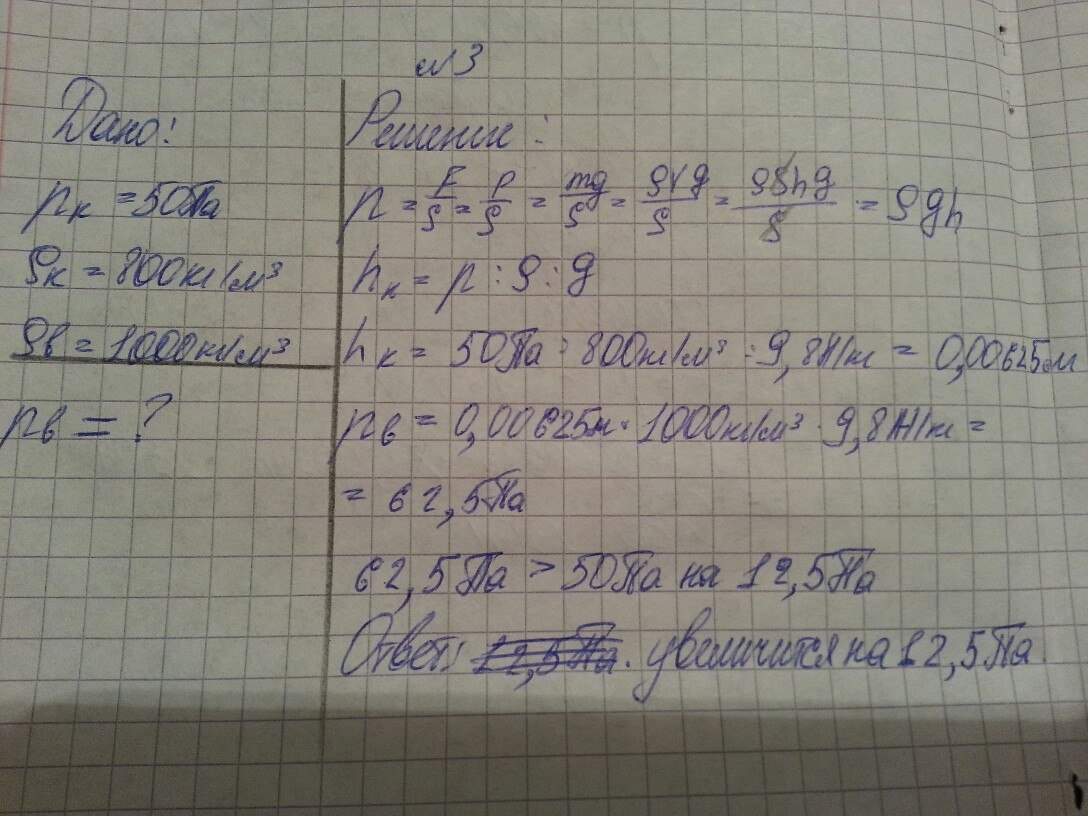 №3
Дано:
pк = 50Па
ρк = 800кг/м³
ρв = 1000кг/м³
pв = ?
Решение:
p = F/S = P/S = mg/S = ρVg/S = ρShg/S = ρgh
hк = p : ρ : g
hк = 50Па : 800кг/м³ : 9,8Н/кг = 0,00625м
pв = 0,00625м · 1000кг/м³ · 9,8Н/кг =
= 62,5Па
62,5Па > 50Па на 12,5Па
Ответ: 12,5Па. увеличится на 12,5Па